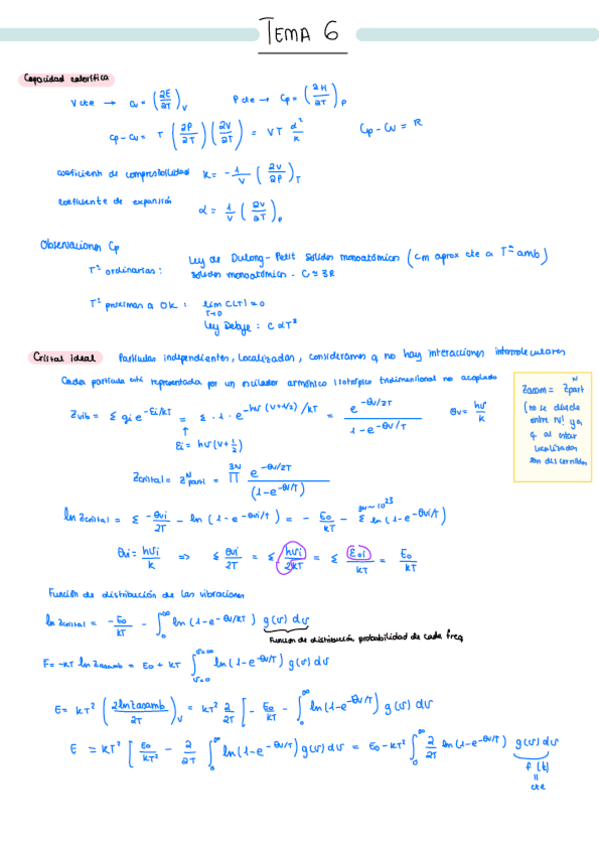 TEMA 6
Capacidad calorífica
V cte → Cv = (∂E/∂T)_V   P cte → Cp = (∂H/∂T)_P
Cp - Cv = T (∂P/∂T)(∂V/∂T) = VT α²/k   Cp - Cv = R
coeficient de compresibilidad k = -1/V (∂V/∂P)_T
coeficiente de expansión α = 1/V (∂V/∂T)_P
Observaciones Cp
Tª ordinarias: Ley de Dulong-Petit sólidos monoatómicos (Cm aprox cte a Tª amb)
sólidos monoatómicos. C ≃ 3R
Tª próximas a 0K: lim C(T) = 0
T→0
Ley Debye: C α T³
Cristal ideal Partículas independientes, localizadas, consideramos q no hay interacciones intermoleculares
Cada partícula está representada por un oscilador armónico isotrópico tridimensional no acoplado
Zvib = Σ gi e^(-Ei/kT) = Σ · 1 · e^(-hν(v+1/2)/kT) = e^(-θv/2T) / (1 - e^(-θv/T))   θv = hν/k
↑
Ei = hν(v + 1/2)
Zasam = Zpart^N
(no se divide
entre N! ya
q al estar
localizadas
son discernibles
Zcristal = Zpart^N = ∏^(3N) e^(-θv/2T) / (1 - e^(-θv/T))
ln Zcristal = Σ -θvi/2T - ln (1 - e^(-θvi/T)) = - E0/kT - Σ^(3N ~ 10^23) ln (1 - e^(-θvi/T))
θvi = hνi/k => Σ θvi/2T = Σ hνi/2kT = Σ E0i/kT = E0/kT
Función de distribución de las vibraciones
ln Zcristal = -E0/kT - ∫₀^∞ ln (1 - e^(-θv/kT)) g(ν) dν
Función de distribución probabilidad de cada freq
F = -kT ln Zasamb = E0 + kT ∫_(ν=0)^(ν=∞) ln (1 - e^(-θv/T)) g(ν) dν
E = kT² (∂lnZasamb/∂T)_V = kT² ∂/∂T [ - E0/kT - ∫₀^∞ ln (1 - e^(-θv/T)) g(ν) dν
E = kT² [ E0/kT² - ∂/∂T ∫₀^∞ ln (1 - e^(-θv/T)) g(ν) dν = E0 - kT² ∫₀^∞ ∂/∂T ln (1 - e^(-θv/T)) g(ν) dν
f (t)
=
cte